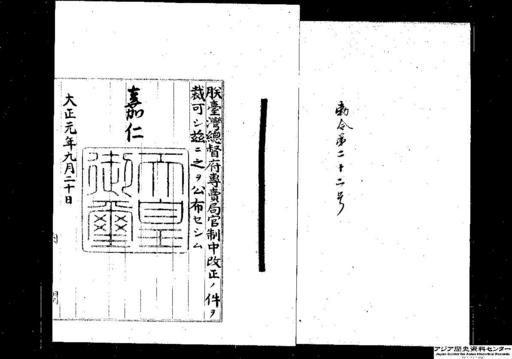 勅令第二十二号
朕臺灣總督府專賣局官制中改正ノ件ヲ
裁可シ茲ニ之ヲ公布セシム
嘉仁
天皇御璽
大正元年九月二十日
アジア歴史資料センター
Japan Center for Asian Historical Records